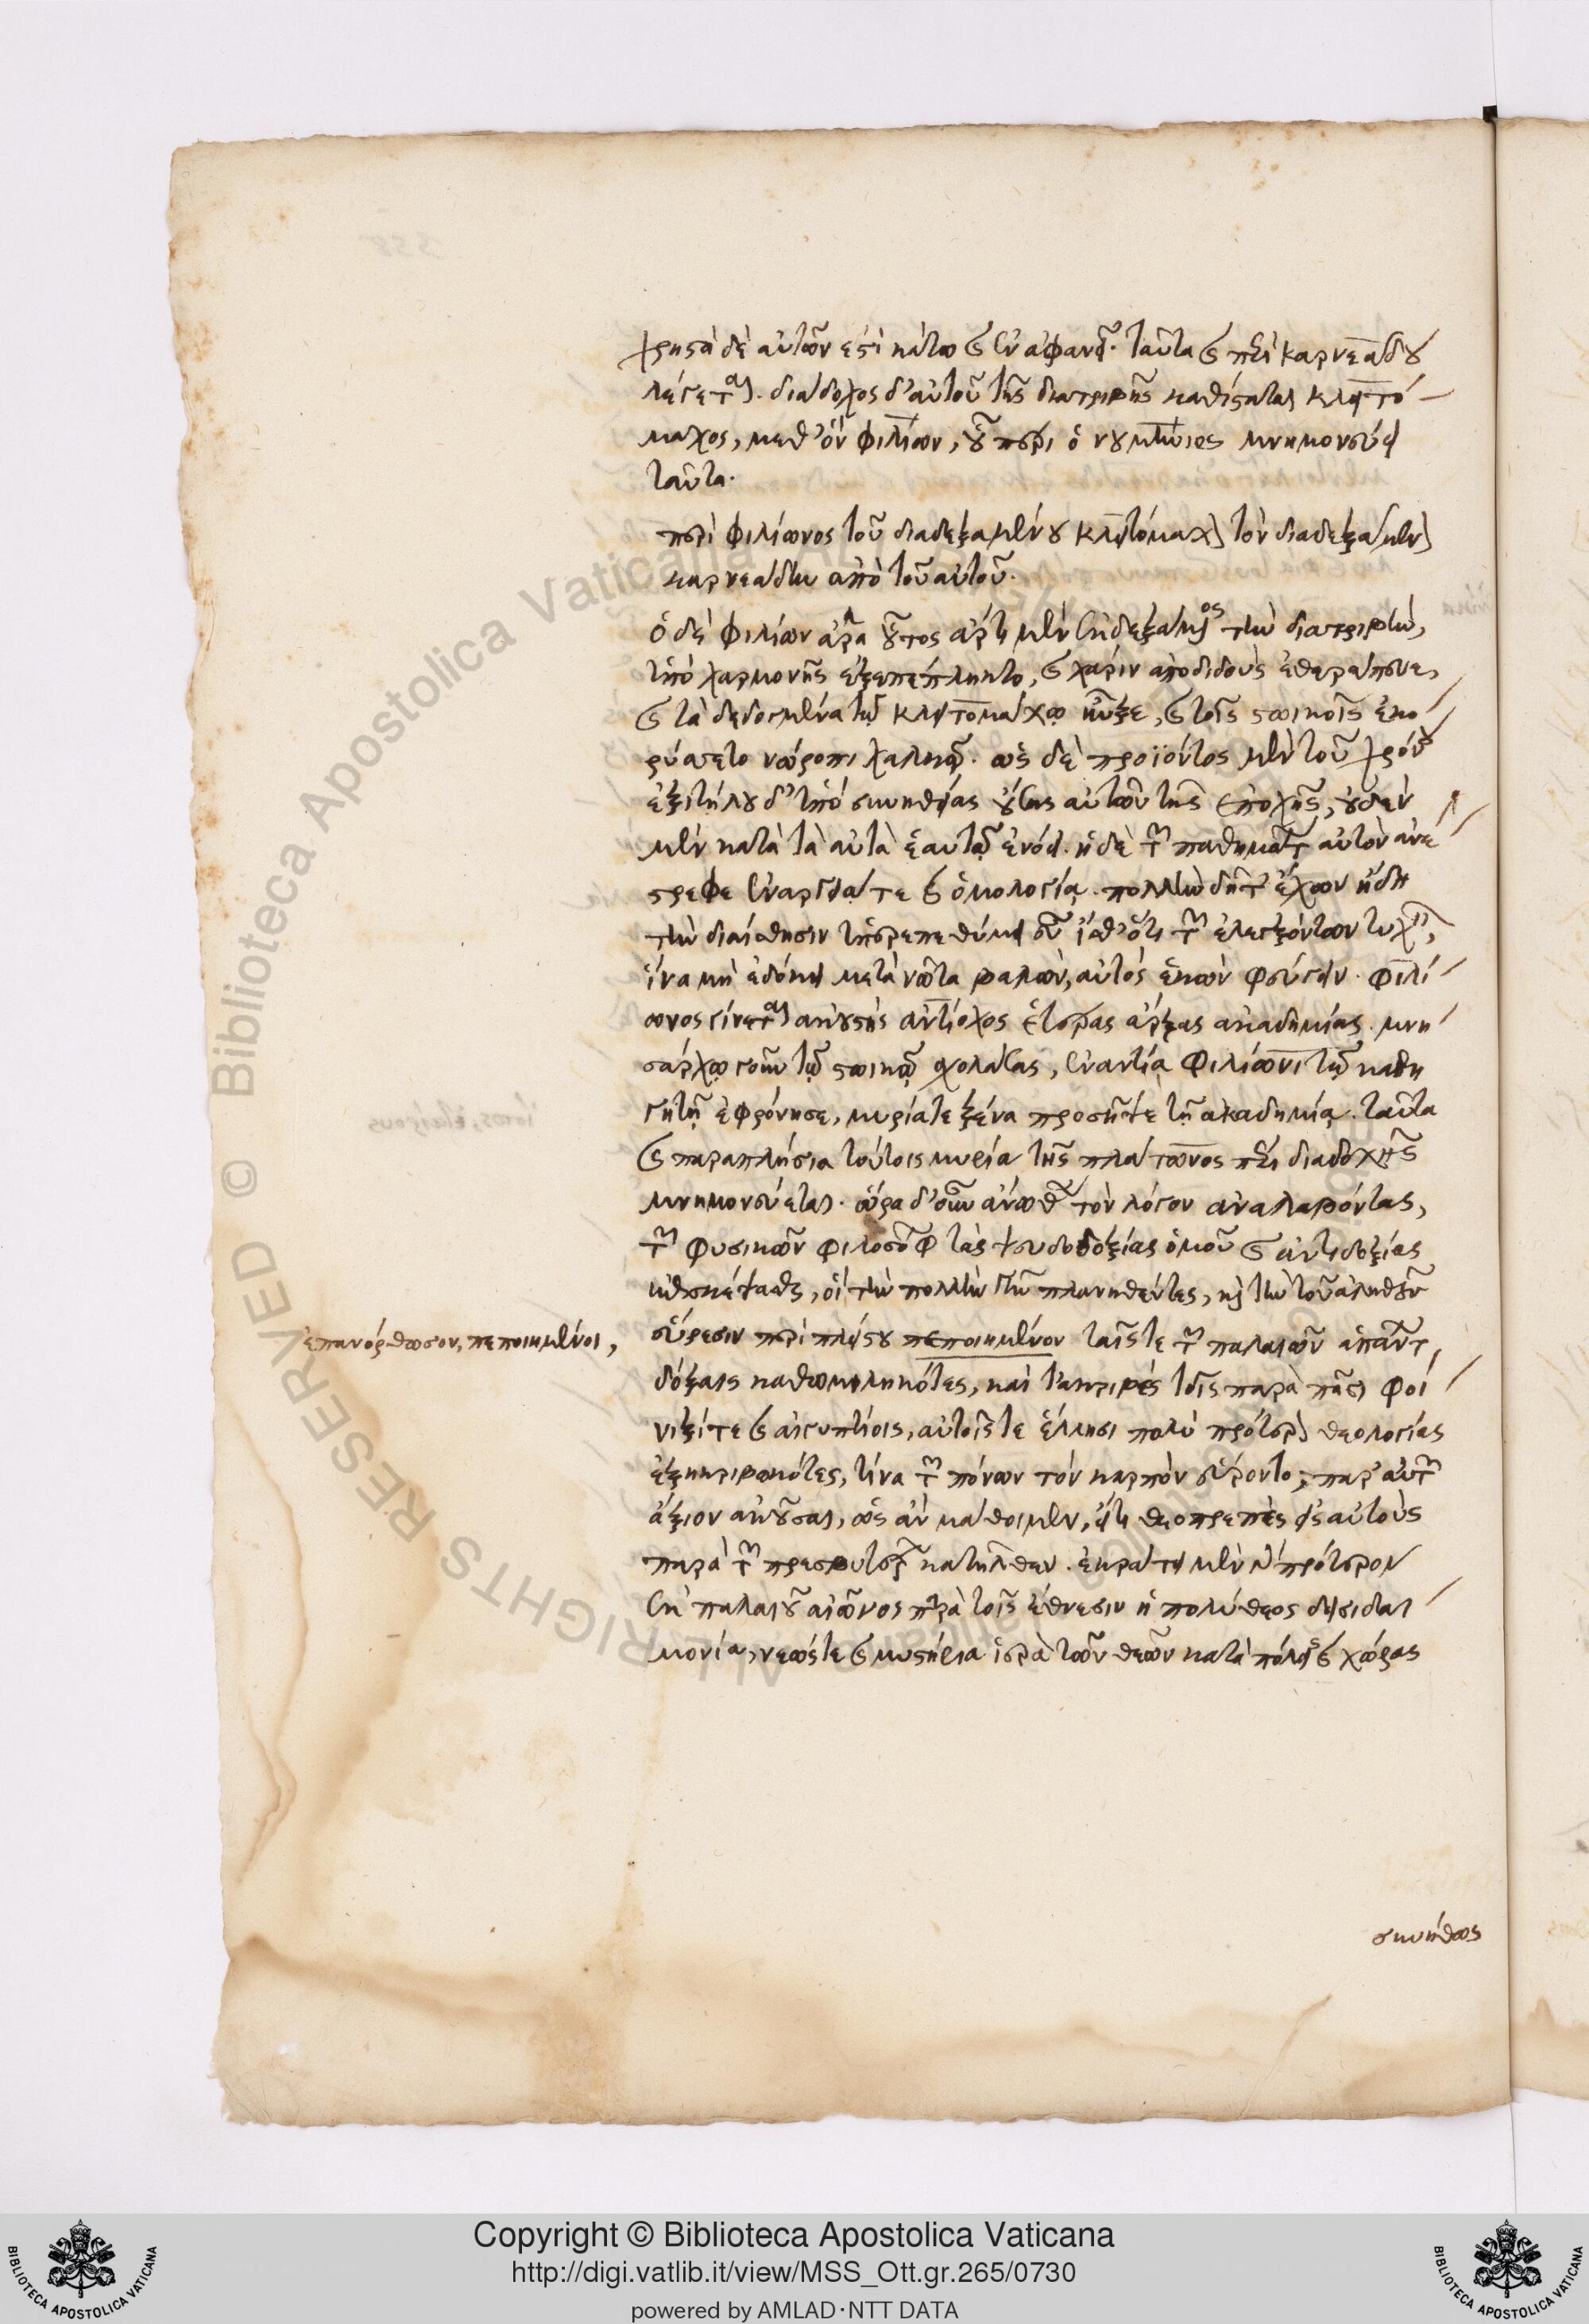 χρηστὰ δὲ αὐτῶν ἐστὶ κάτω καὶ ἐν ἀφανεῖ. ταῦτα καὶ περὶ καρνεάδου
λέγεται. διάδοχος δ' αὐτοῦ τῆς διατριβῆς καθίσταται κλειτό
μαχος, μεθ' ὃν φιλίων, οὗ πέρι ὁ νουμήνιος μνημονεύει
ταῦτα.
περὶ φιλίωνος τοῦ διαδεξαμένου κλειτόμαχον τὸν διαδεξάμενον
καρνεάδην ἀπὸ τοῦ αὐτοῦ.
ὁ δὲ φιλίων ἄρα οὗτος ἄρτι μὲν ἐκδεξάμενος τὴν διατριβὴν,
ὑπὸ χαρμονῆς ἐξεπέπληκτο, καὶ χάριν ἀποδιδοὺς ἐθεράπευε,
καὶ τὰ δεδογμένα τῷ κλειτομάχῳ ηὖξε, καὶ τοῖς στωικοῖς ἐκο
ρύσσετο νώροπι χαλκῷ. ὡς δὲ προϊόντος μὲν τοῦ χρόνου
ἐξιτήλου δ' ὑπὸ συνηθείας οὔσης αὐτῶν τῆς ἐποχῆς, οὐδὲν
μὲν κατὰ τὰ αὐτὰ ἑαυτῷ ἐνόει. ἡ δὲ τῶν παθημάτων αὐτὸν ἀνέ
στρεφε ἐναργείᾳ τε καὶ ὁμολογίᾳ. πολλὴν δῆτ' ἔχων ἤδη
τὴν διαίσθησιν ὑπερεπεθύμει εὖ ἴσθ' ὅτι τῶν ἐλεγξόντων τυχεῖν,
ἵνα μὴ ἐδόκει μετὰ νῶτα βαλὼν, αὐτὸς ἑκὼν φεύγειν. φιλί
ωνος γίνεται ἀκουστὴς ἀντίοχος ἑτέρας ἄρξας ἀκαδημίας. μνη
σάρχῳ γοῦν τῷ στωικῷ σχολάσας, ἐναντία φιλίωνι τῷ καθη
γητῇ ἐφρόνησε, μυρία τε ξένα προσῆψε τῇ ἀκαδημίᾳ. ταῦτα
καὶ παραπλήσια τούτοις μυρία τῆς πλάτωνος περὶ διαδοχῆς
μνημονεύεται. ὥρα δ' οὖν ἄνωθεν τὸν λόγον ἀναλαβόντας,
τῶν φυσικῶν φιλοσόφων τὰς ψευδοδοξίας ὁμοῦ καὶ ἀντιδοξίας
οἱ τὴν πολλὴν γῆν πλανηθέντες, καὶ τὴν τοῦ ἀληθοῦς
ἐπανόρθωσον, πεποιημένοι,
εὕρεσιν περὶ πλείστου πεποιημένον ταῖς τε τῶν παλαιῶν ἁπάντων
δόξαις καθωμιληκότες, καὶ τἀκριβὲς τῆς παρὰ πᾶσι φοί
νιξί τε καὶ αἰγυπτίοις, αὐτοῖς τε ἕλλησι πολὺ πρότερον θεολογίας
ἐξηκριβωκότες, τίνα τῶν πόνων τὸν καρπὸν εὕροντο, παρ' αὐτῶν
ἄξιον ἀκοῦσαι, ὡς ἂν μάθοιμεν, εἴ τι θεοπρεπὲς εἰς αὐτοὺς
παρὰ τῶν πρεσβυτέρων κατῆλθεν. ἐκράτει μὲν πρότερον
ἐκ παλαιοῦ αἰῶνος παρὰ τοῖς ἔθνεσιν ἡ πολύθεος δεισιδαι
μονία, νεώς τε καὶ μυστήρια ἱερὰ τῶν θεῶν κατὰ πόλεις καὶ χώρας
συνήθως
Copyright © Biblioteca Apostolica Vaticana
http://digi.vatlib.it/view/MSS_Ott.gr.265/0730
powered by AMLAD·NTT DATA